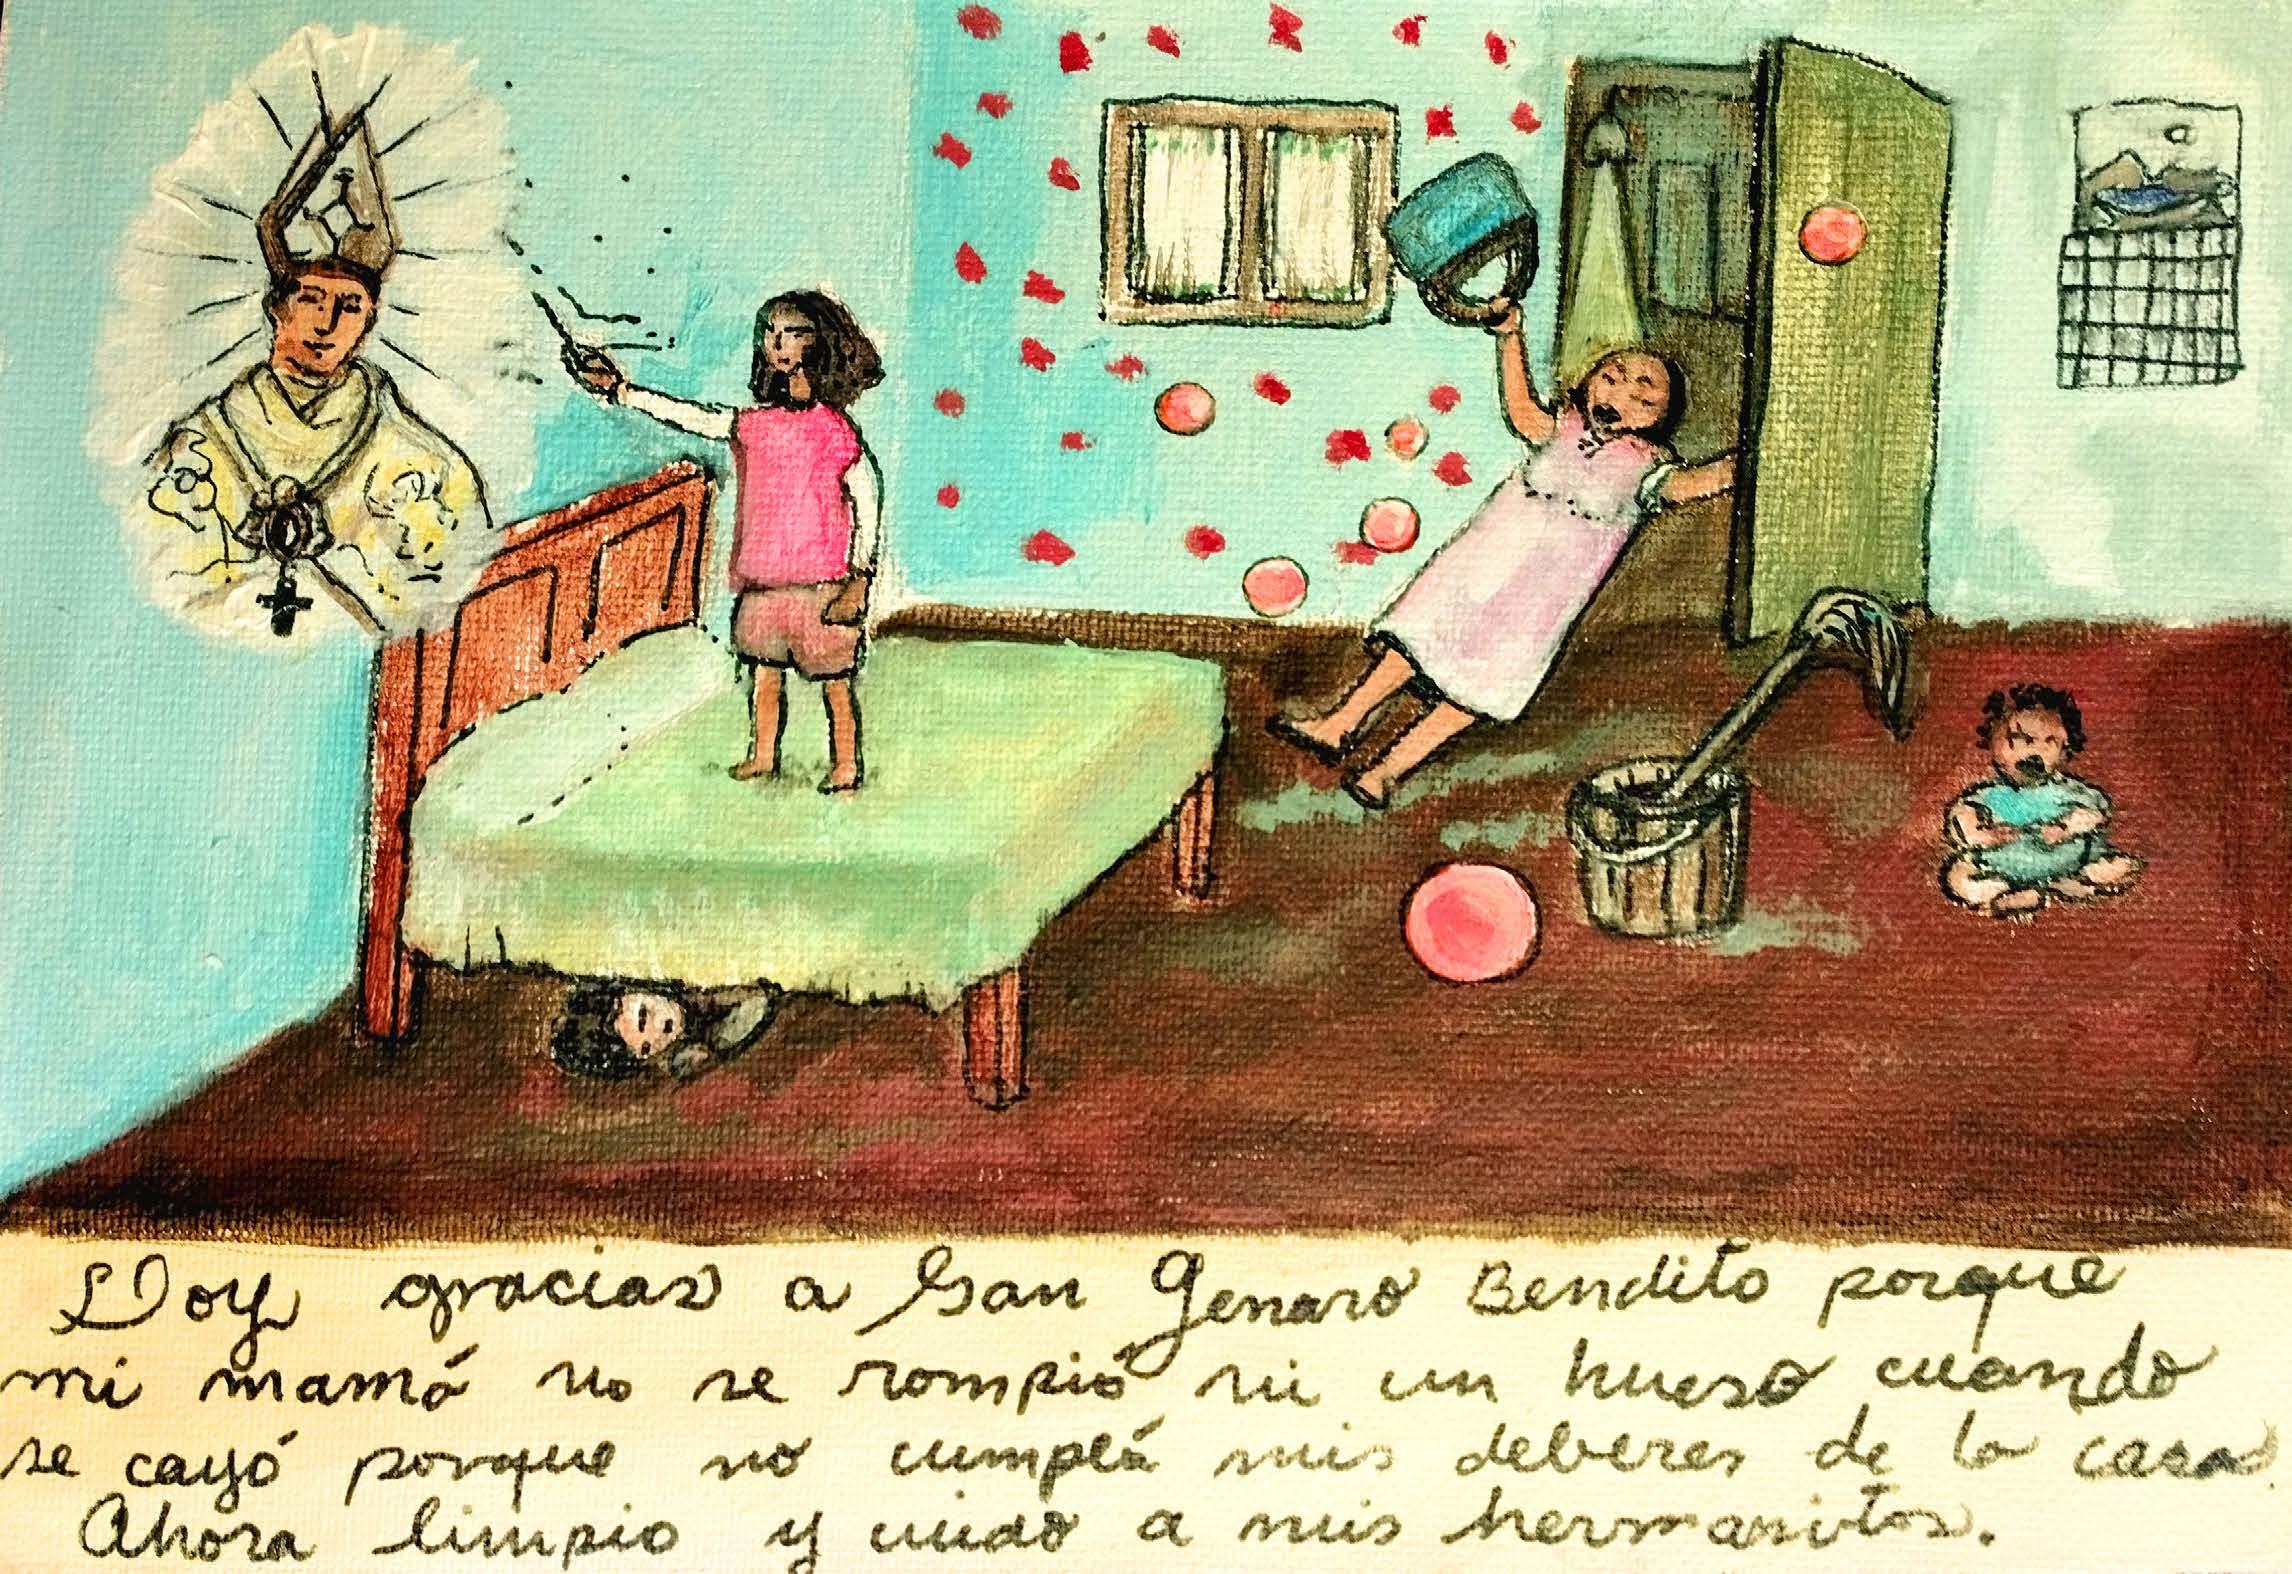 Doy gracias a San Genaro Bendito porque
mi mamá no se rompió ni un hueso cuando
se cayó porque no cumplí mis deberes de la casa
Ahora limpio y cuido a mis hermanitos.